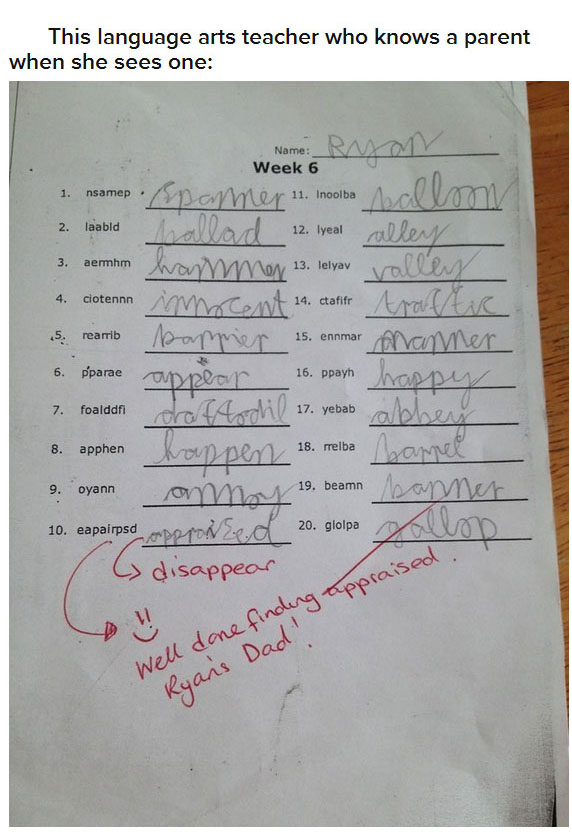 This language arts teacher who knows a parent
when she sees one:
Name: Ryan
Week 6
1. nsamep spanner 11. lnoolba balloon
2. laabld ballad 12. lyeal alley
3. aermhm hammer 13. lelyav valley
4. ciotennn innocent 14. ctafifr traffic
5. rearrib barrier 15. ennmar manner
6. pparae appear 16. ppayh happy
7. foalddfi daffodil 17. yebab abbey
8. apphen happen 18. rrelba barrel
9. oyann annoy 19. beamn banner
10. eapairpsd appraised 20. glolpa gallop
disappear
Well done finding appraised.
Ryan's Dad!